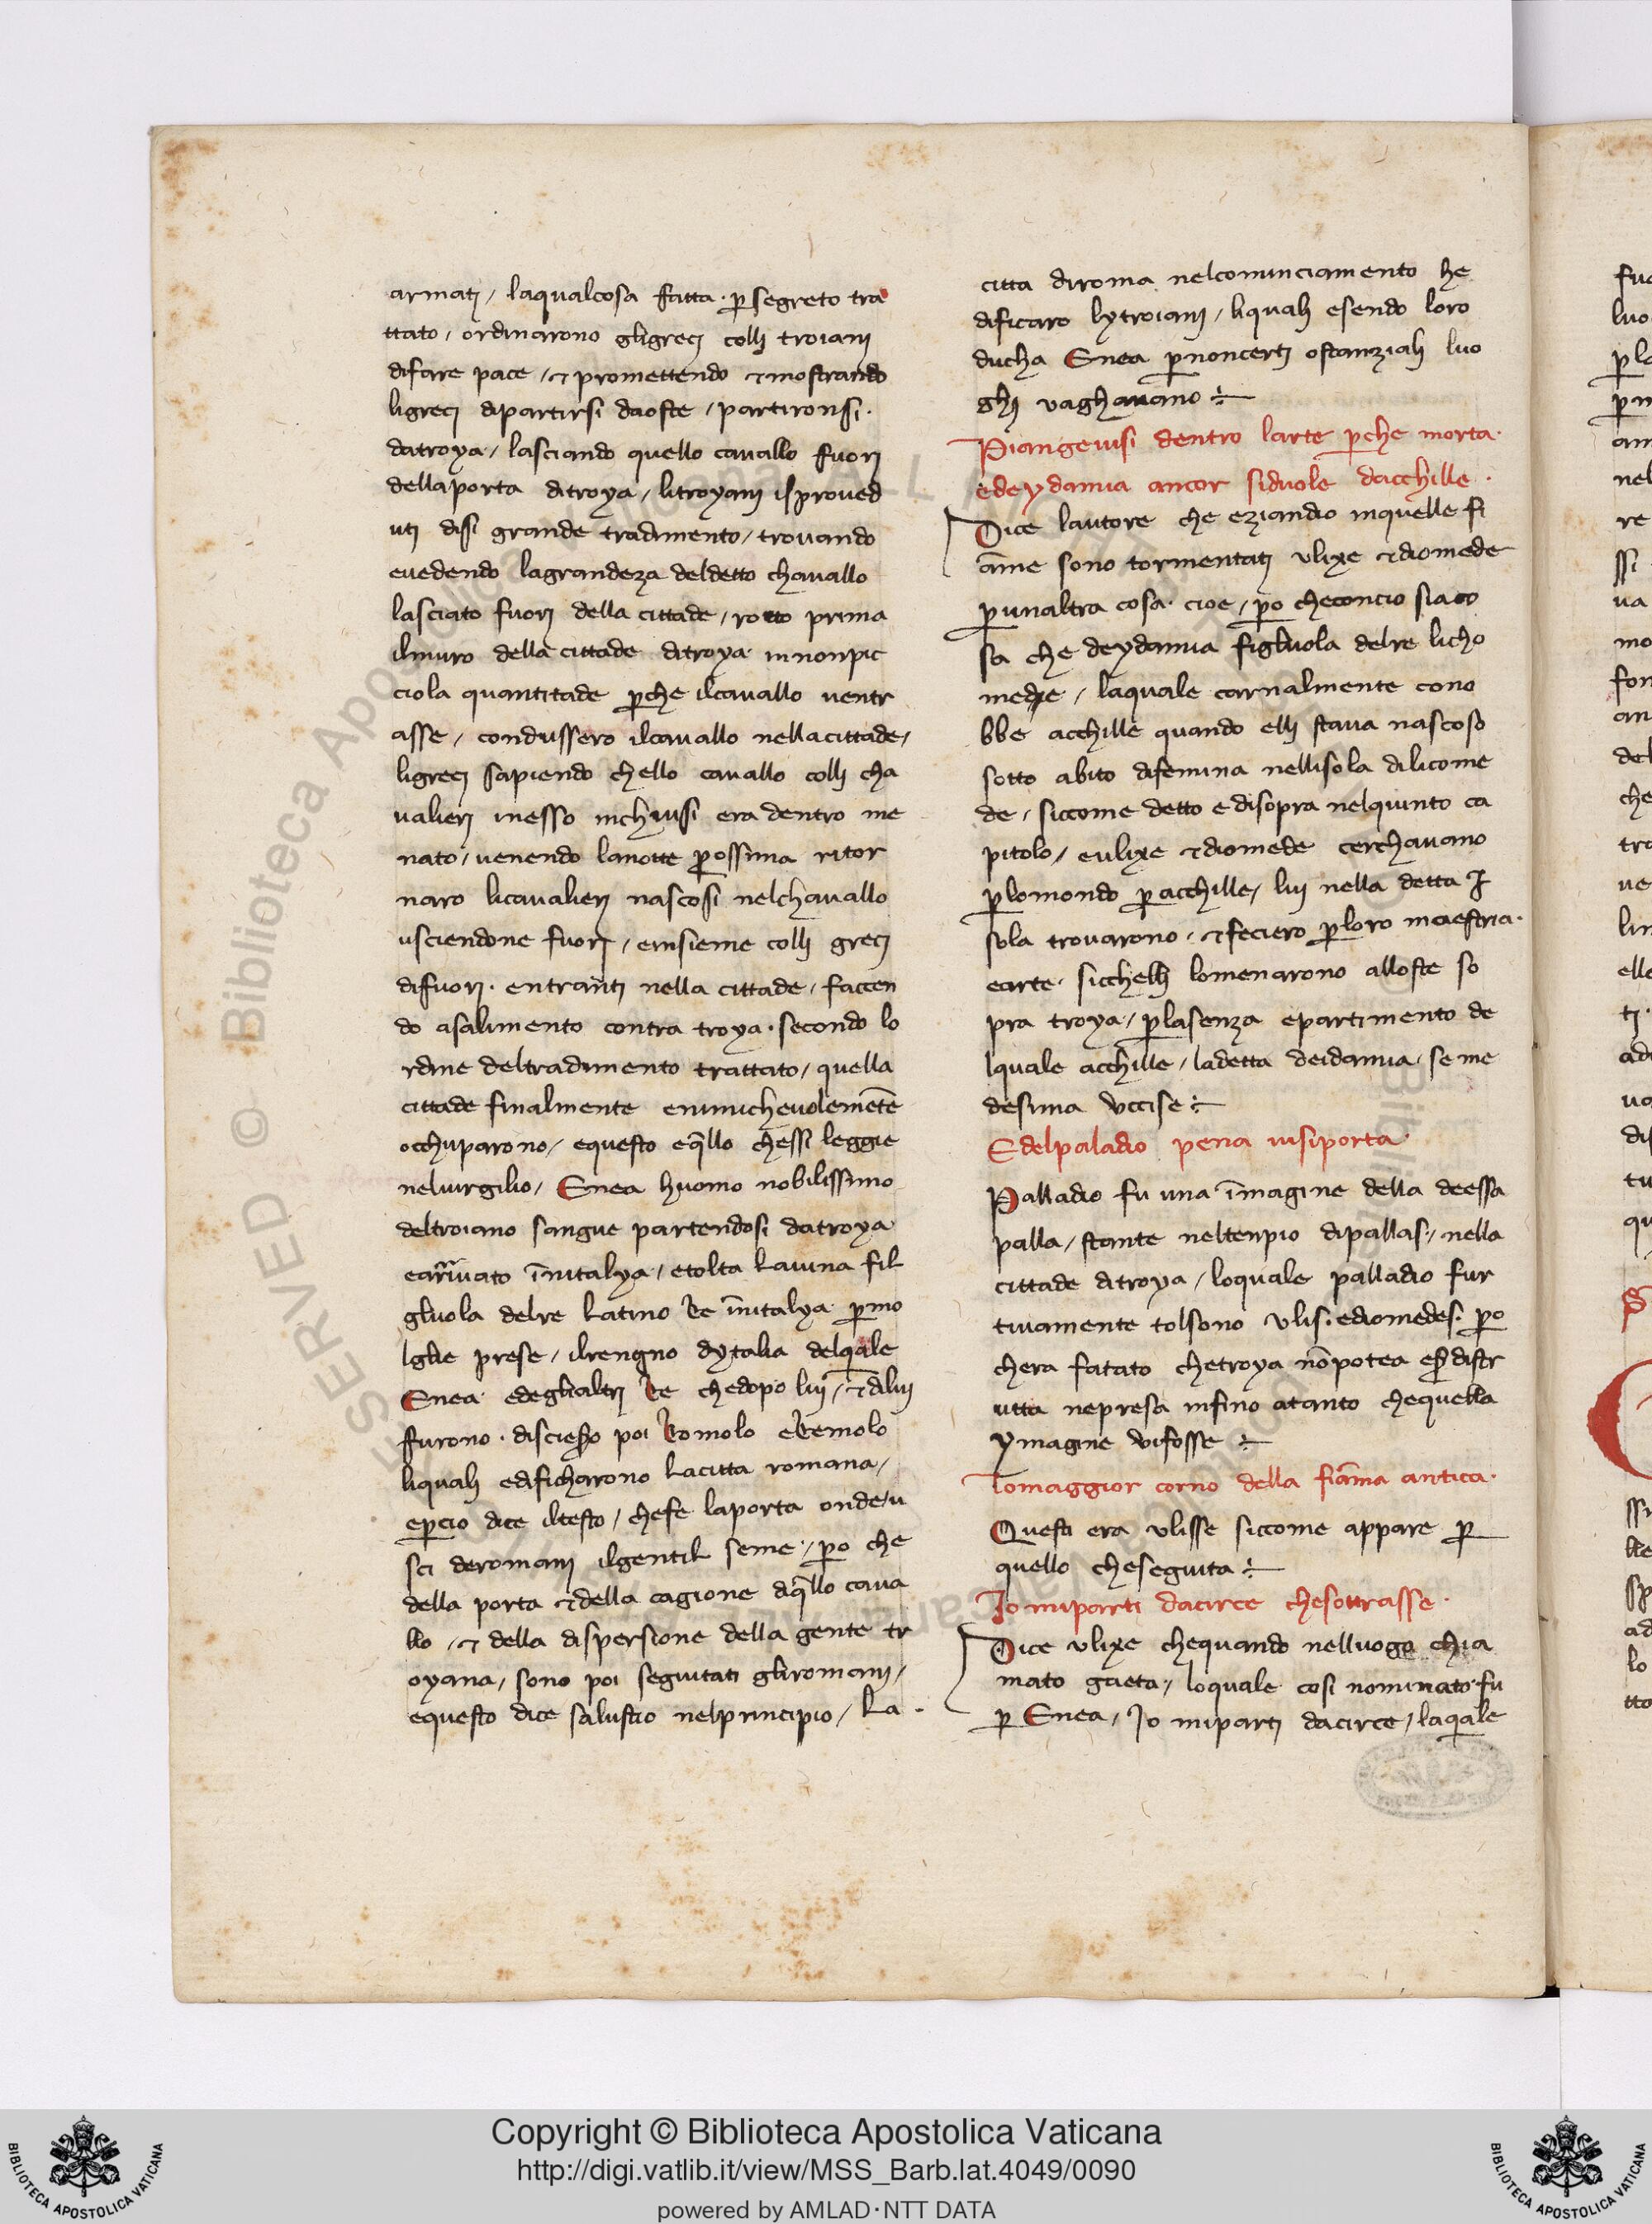 armatj / laqualcosa fatta · p̱ segreto tra
ttato / ordinarono gligrecj collj troianj
difare pace / ⁊ promettendo ⁊ mostrando
ligrecj dipartirsi daoste / partironsi ·
datroya / lasciando quello cavallo fuorj
dellaporta ditroya / litroyanj isproved
uti disi grande tradimento / trovando
evedendo lagrandeza deldetto chavallo
lasciato fuorj della cittade / rotto prima
ilmuro della cittade ditroya innonpic
ciola quantitade p̱che ilcavallo ventr
asse / condussero ilcavallo nellacittade /
ligrecj sapiendo chello cavallo collj cha
valierj inesso inchiusi era dentro me
nato / venendo lanotte p̱ossima ritor
naro licavalierj nascosi nelchavallo
usciendone fuorj / einsieme collj grecj
difuorj · entrantj nella cittade / faccen
do asalimento contra troya · secondo lo
rdine deltradimento trattato / quella
cittade finalmente enimichevolemēte
occhuparono / equesto eq̄llo chessi leggie
nelvirgilio / Enea huomo nobilissimo
deltroiano sangue partendosi datroya
earrivato īnitalya / etolta Lavina fil
gluola delre Latino Re īnitalya p̱ mo
lglie prese / ilrengno dytalia delqale
Enea edeglialtrj Re chedopo luj / ⁊ dilui
ffurono · discieso poi Romolo eRemolo
liqualj edificharono Lacitta romana /
ep̱cio dice iltesto / chefe laporta ondeu
sci deromanj ilgentil seme / p̱o che
della porta ⁊ della cagione diq̄llo cava
llo / ⁊ della dispersione della gente tr
oyana / sono poi seguitati gliromanj /
equesto dice salustio nelprincipio / La ·
citta diroma nelcominciamento he
dificaro lytroianj / liqualj esendo loro
ducha Enea p̱ noncertj ostanzialj luo
ghj vaghavano ÷
Piangevisi dentro larte p̱che morta ·
edeydamia ancor siduole dacchille ·
Dice lautore che eziandio inquelle fi
āme sono tormentatj ulixe ⁊ diomede
p̱ unaltra cosa · cioe / p̱o checoncio siaco
sa che deydamia figluola delre licho
mede / laquale carnalmente cono
bbe acchille quando elli stava nascoso
sotto abito difemina nellisola dilicome
de / siccome detto e disopra nelquinto ca
pitolo / eulixe ⁊ diomede cerchavano
p̱ lomondo p̱ acchille / luj nella detta I
sola trovarono · ⁊ feciero p̱ loro maestria ·
earte · sicchellj lomenarono alloste so
pra troya / p̱ lasenza epartimento de
lquale acchille / ladetta deidamia · se me
desima uccise ÷
Edelpaladio pena visiporta ·
Palladio fu una īmagine della deessa
palla / stante neltenpio dipallas · / nella
cittade ditroya / loquale palladio fur
tivamente tolsono ulis · ediomedes · p̱o
chera fatato chetroya nō potea eser distr
utta nepresa infino atanto chequella
ymagine vifosse ÷
Lomaggior corno della fiāma antica ·
Questi era ulisse siccome appare p̱
quello cheseguita ÷
Io miparti dacirce chesottrasse ·
Dice ulixe chequando nelluogo chia
mato gaeta / loquale cosi nominato fu
p̱ Enea / Io mipartj dacirce / laqale
Copyright © Biblioteca Apostolica Vaticana
http://digi.vatlib.it/view/MSS_Barb.lat.4049/0090
powered by AMLAD·NTT DATA